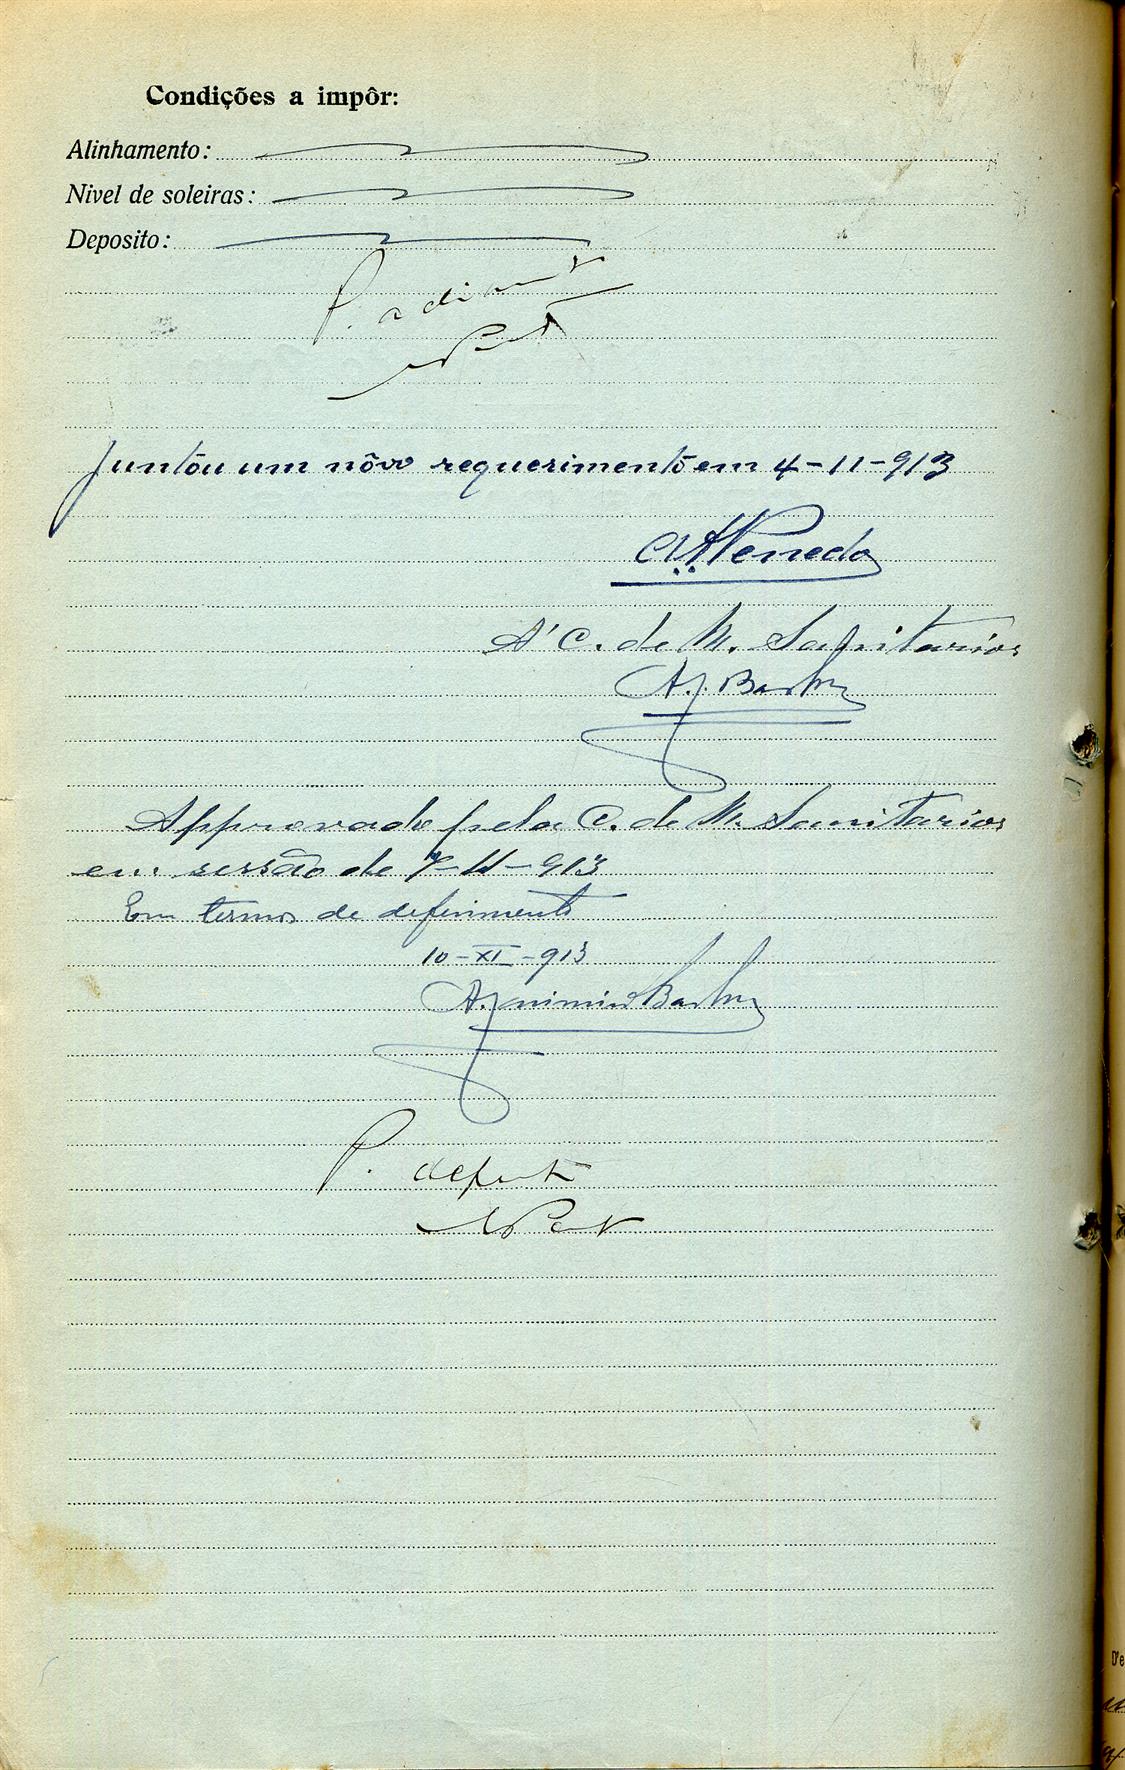 Condições a impôr:
Alinhamento:
Nivel de soleiras:
Deposito:
P.
Juntou um nôvo requerimento em 4-11-913
Penedo
A' C. de M. Sanitarios
A. J. Barbosa
Approvado pela C. de M. Sanitarios
em sessão de 7-11-913
Em termos de deferimento
10-XI-913
A.
P.